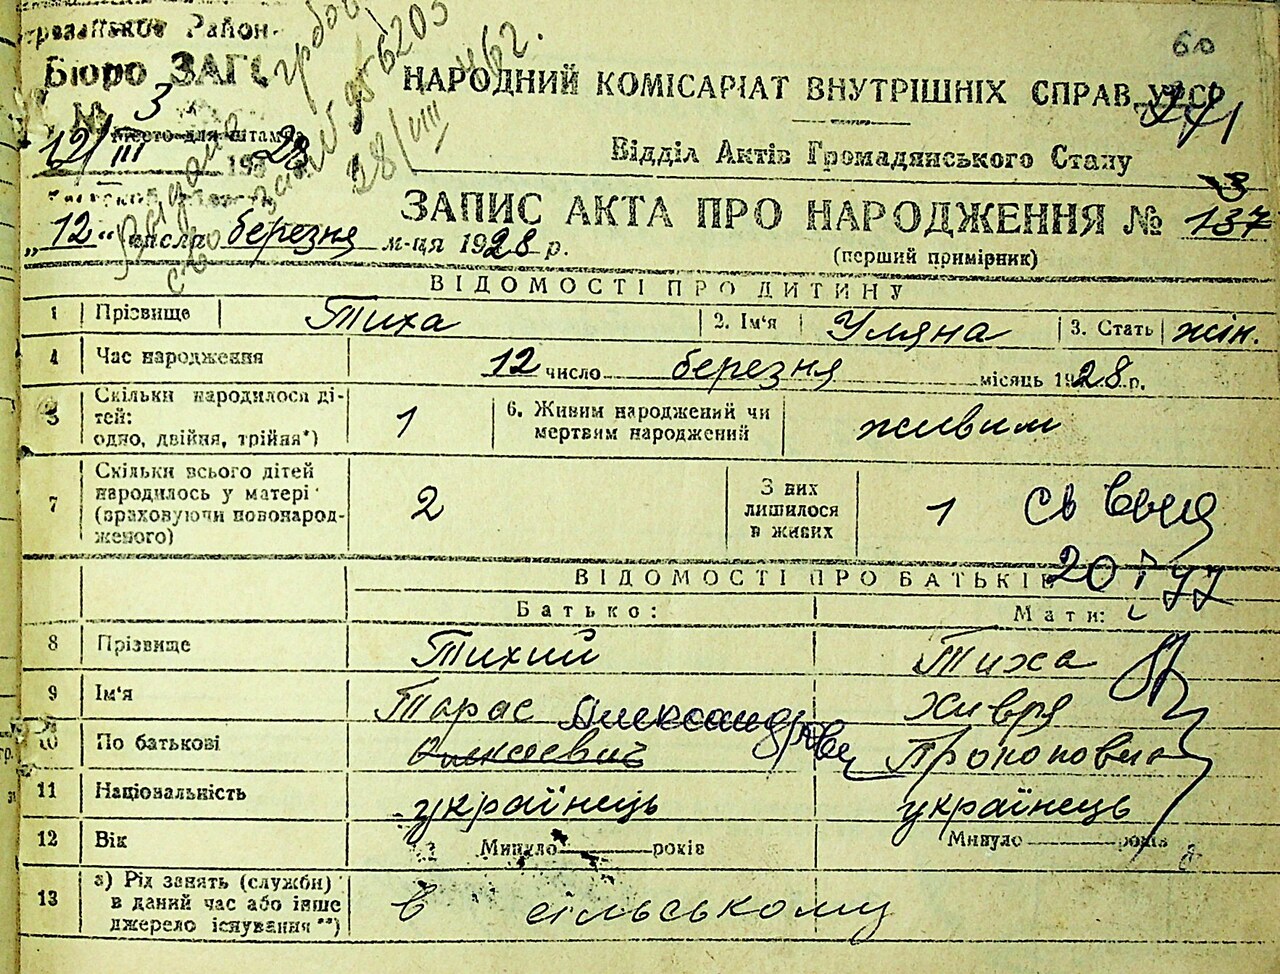 Район-
Бюро ЗАГС
№ 3
Место для штампа
12/III 1928
60
НАРОДНИЙ КОМІСАРІАТ ВНУТРІШНІХ СПРАВ УРСР
241
Відділ Актів Громадянського Стану
ЗАПИС АКТА ПРО НАРОДЖЕННЯ № 137
„12“ числа березня м-ця 1928 р.
(перший примірник)
28/VIII 46 г.
ВІДОМОСТІ ПРО ДИТИНУ
1 Прізвище Тиха 2. Ім'я Уляна 3. Стать жін.
4 Час народження 12 число березня місяць 1928 р.
5 Скільки народилося ді-
тей:
одно, двійня, трійня*) 1 6. Живим народжений чи
мертвим народжений живим
7 Скільки всього дітей
народилось у матері
(враховуючи новонарод-
женого) 2 З них
лишилося
в живих 1
20 I 77
ВІДОМОСТІ ПРО БАТЬКІВ
Батько: Мати:
8 Прізвище Тихий Тиха
9 Ім'я Тарас Хивря
10 По батькові Олексоевич Прокоповна
11 Національність українець українець
12 Вік Минуло років Минуло років
13 а) Рід занять (служби)
в даний час або інше
джерело існування**) в сільському